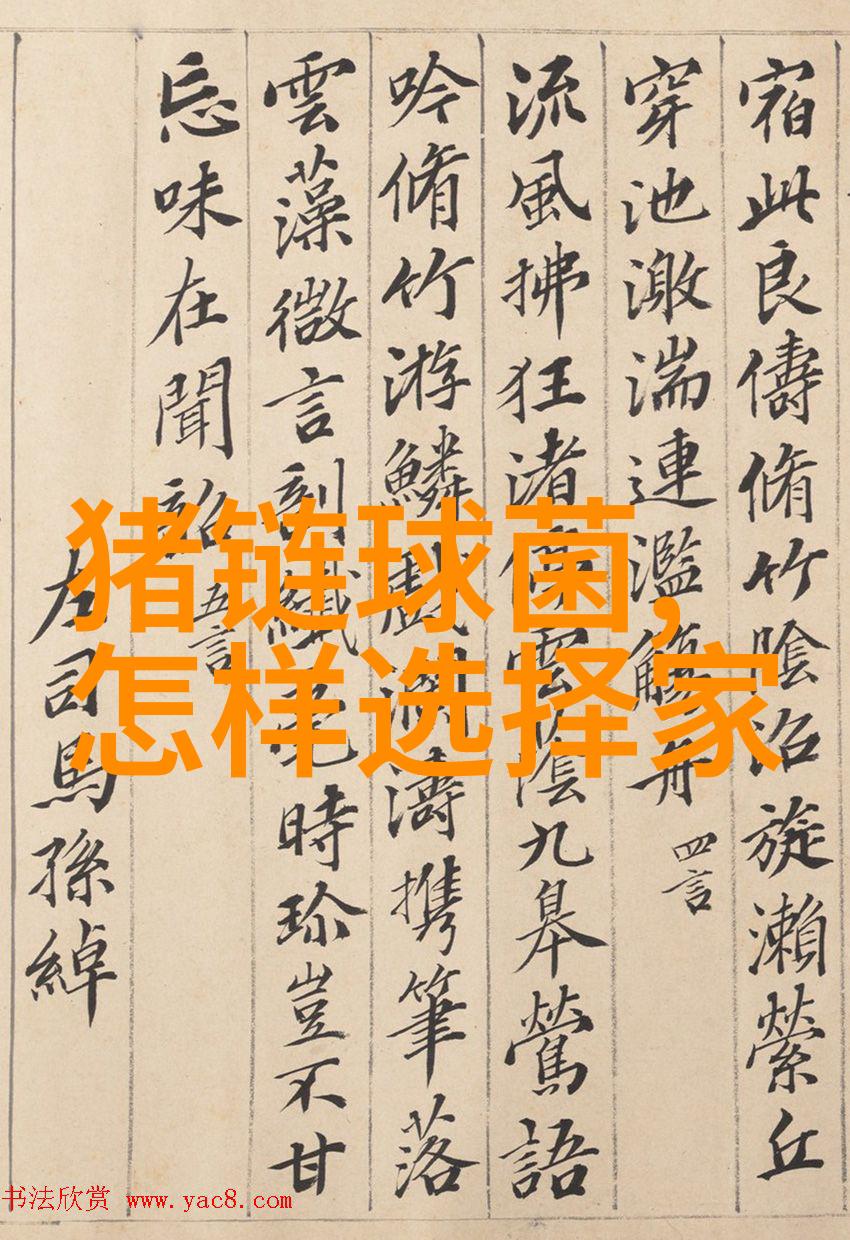 宿此良儔脩竹陰沼旋瀨縈丘
穿池激湍連濫觴舟
四言
流風拂狂渚停雲陰九皋鶯語
吟脩竹游鱗戲瀾濤携筆落
雲藻微言剖纖毫時珎豈不甘
忘味在聞韶
五言
左司馬孫綽
猪链球菌,
怎样选择家
书法欣赏 www.yac8.com